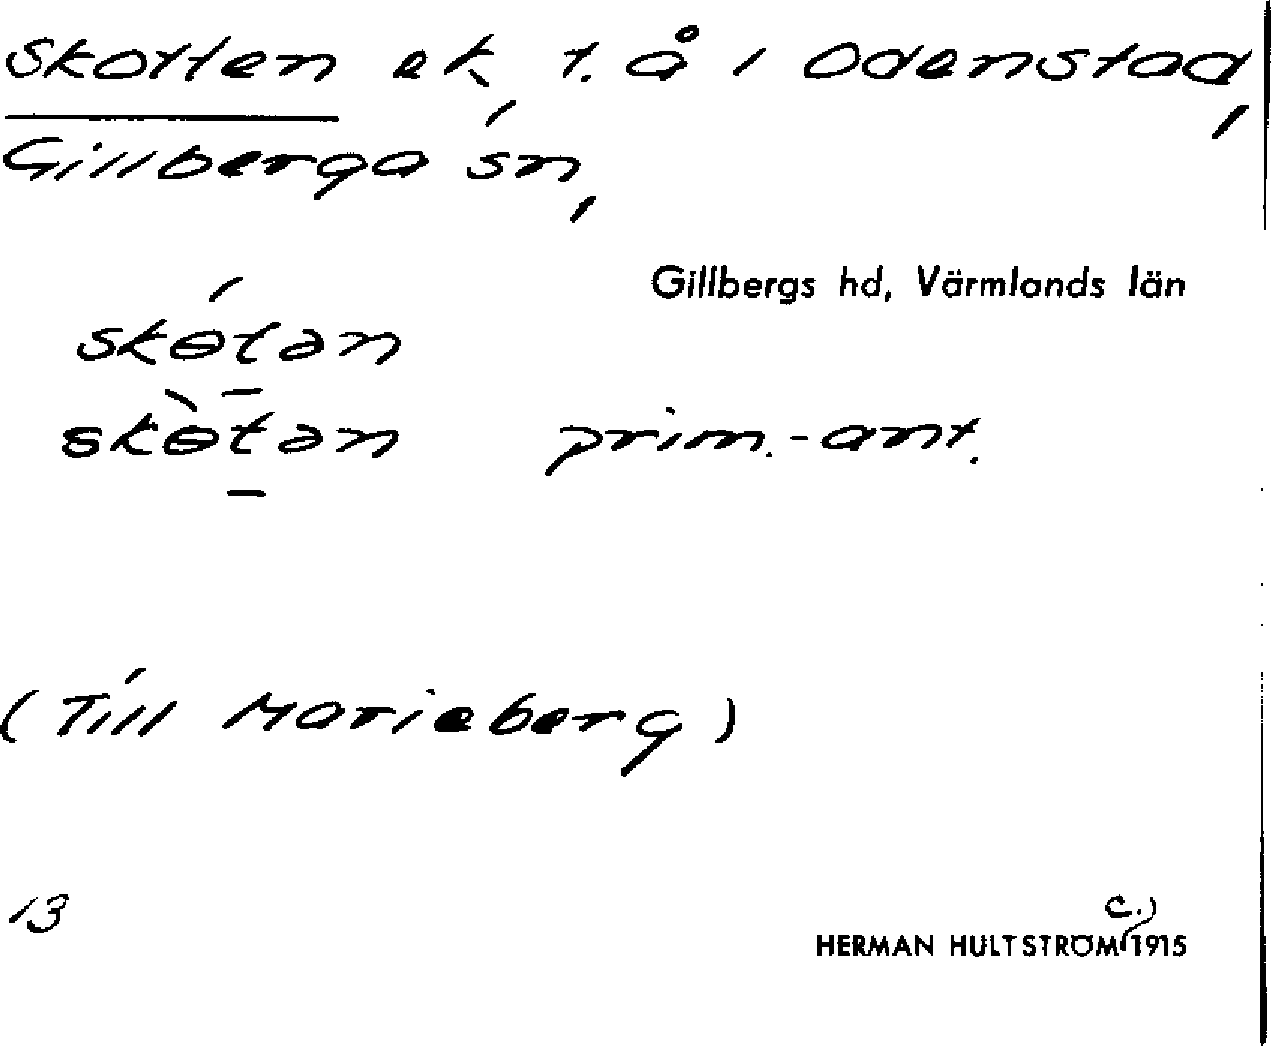 Skotten ek, t. å i Odenstad,
Gillberga sn,
Gillbergs hd, Värmlands län
skɵ́tən
skɵ̀tən prim.-ant.
(Till Marieberg)
13
c.)
HERMAN HULTSTRÖM 1915